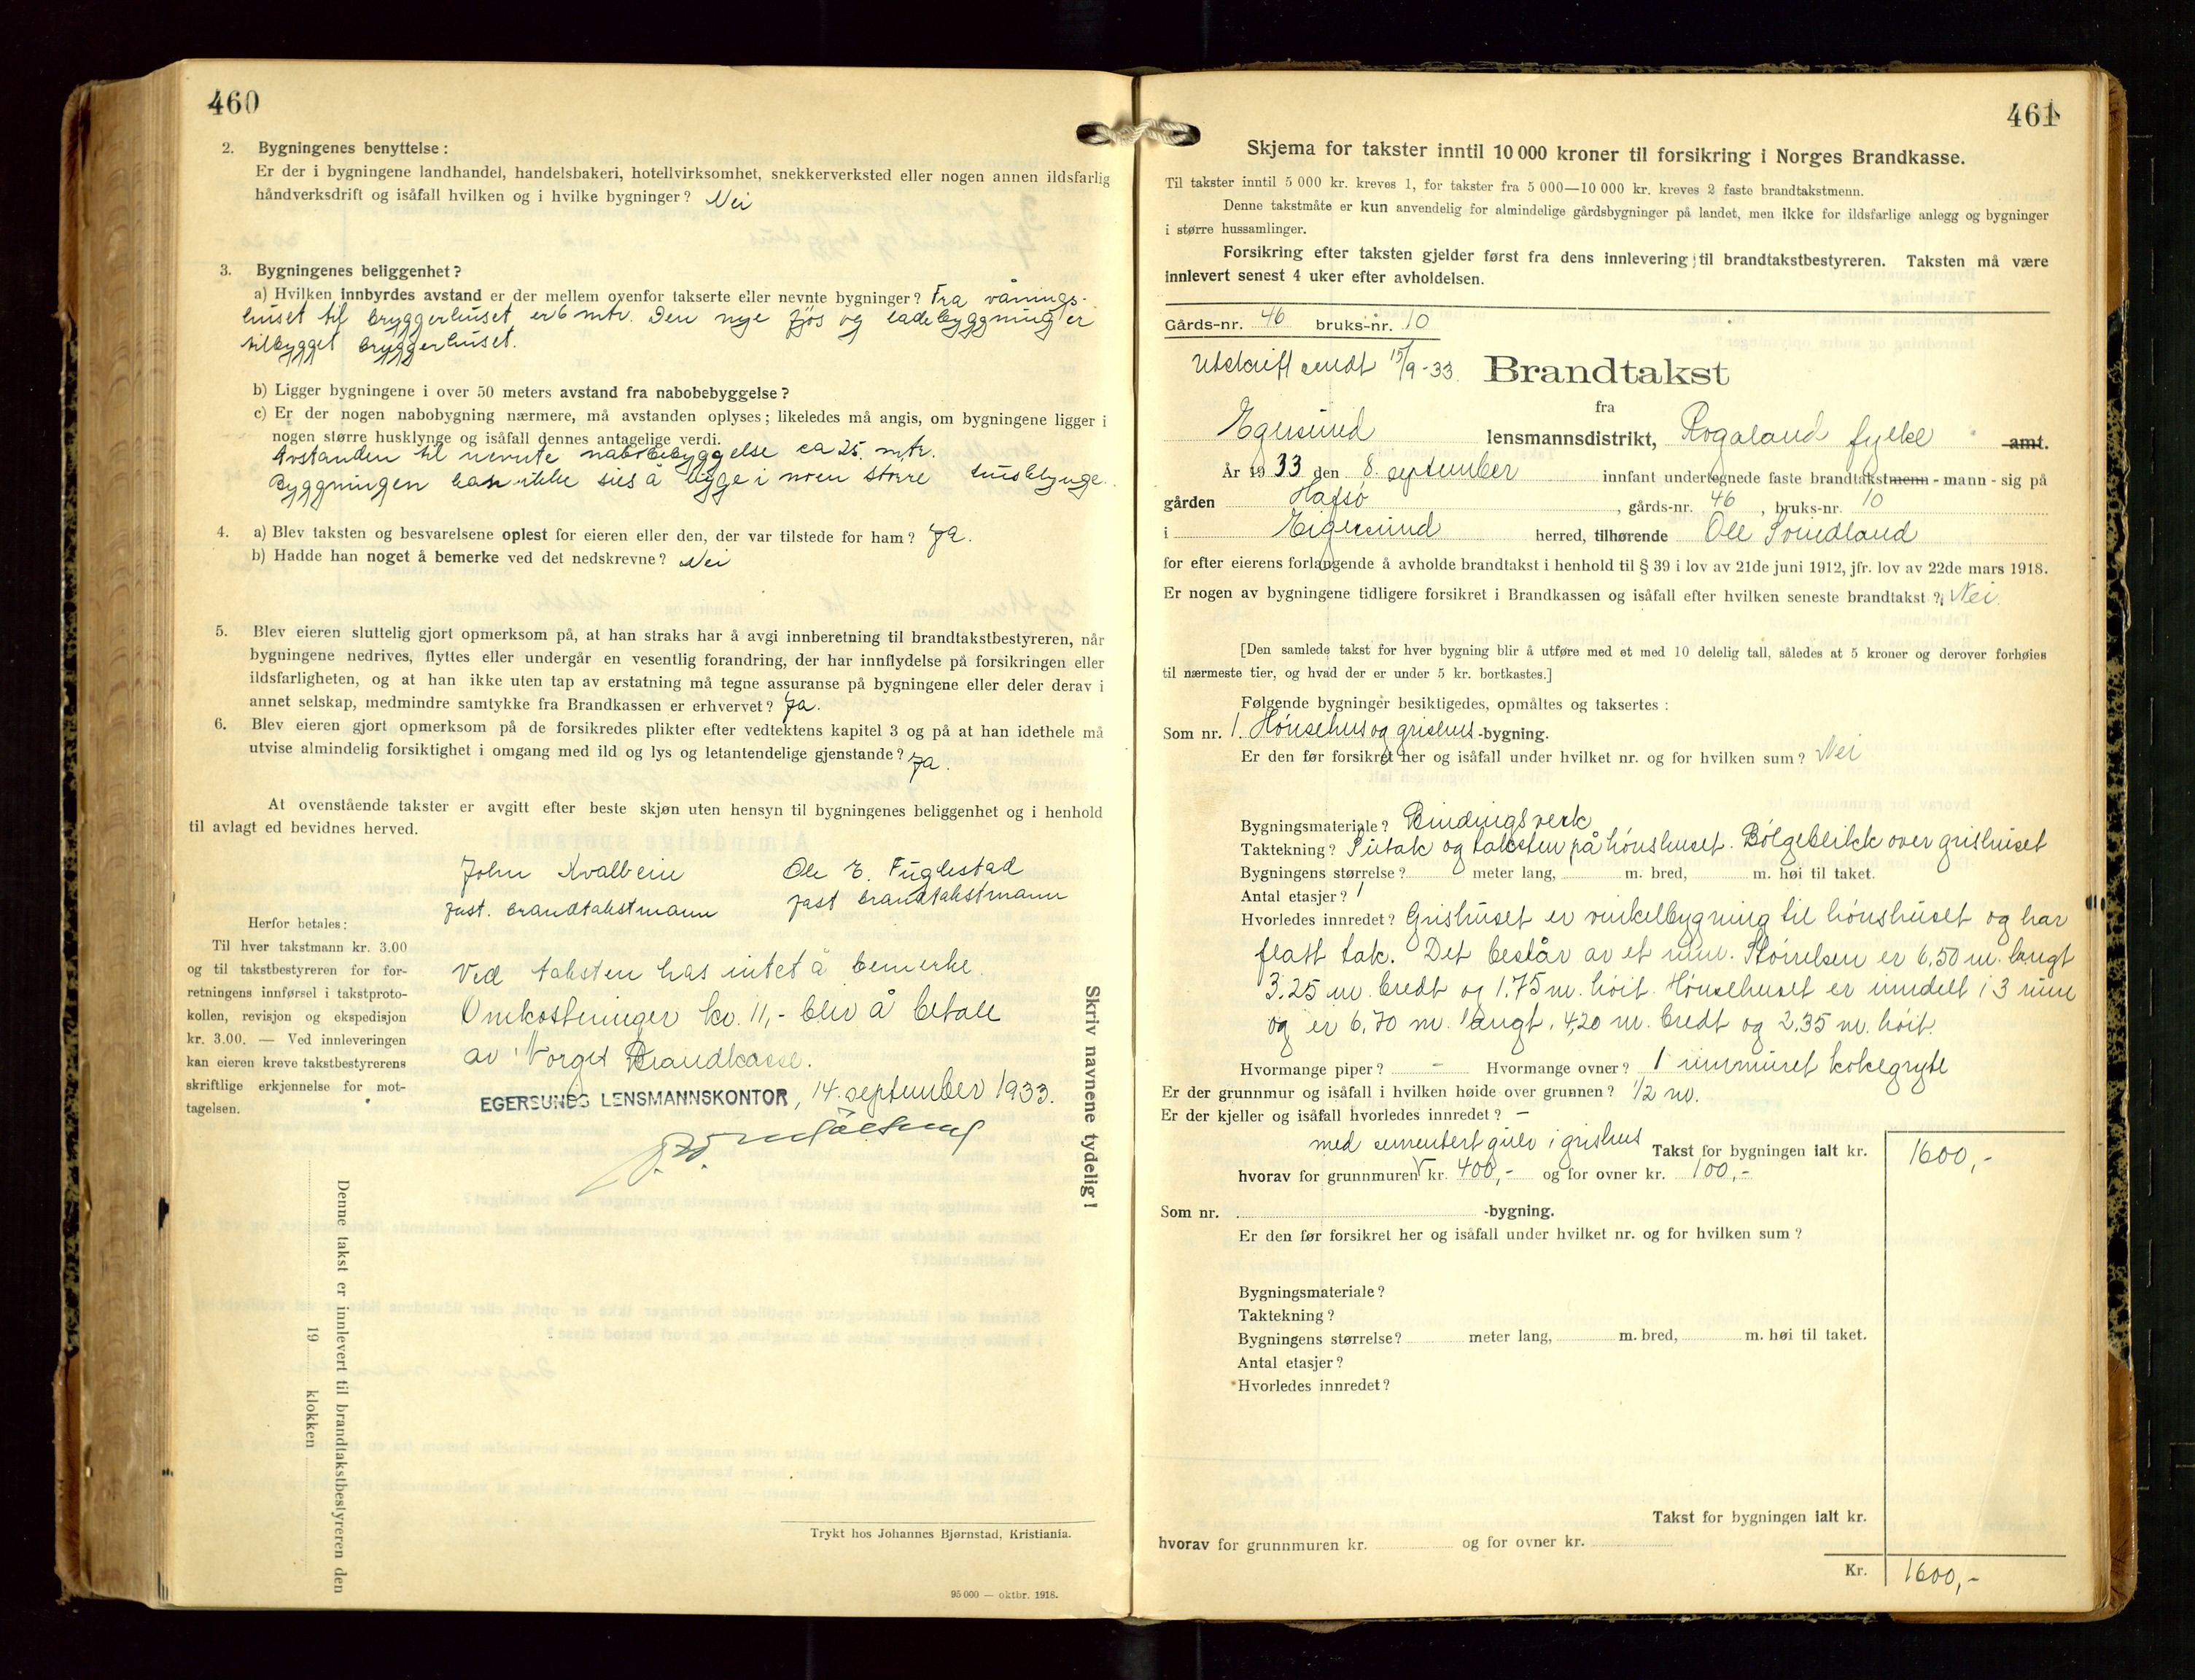 460
2. Bygningenes benyttelse:
Er der i bygningene landhandel, handelsbakeri, hotellvirksomhet, snekkerverksted eller nogen annen ildsfarlig
håndverksdrift og isåfall hvilken og i hvilke bygninger? Nei
3. Bygningenes beliggenhet?
a) Hvilken innbyrdes avstand er der mellem ovenfor takserte eller nevnte bygninger? Fra vånings-
huset til bryggerhuset er 6 mtr. Den nye fjøs og ladebyggning er
tilbygget bryggerhuset.
b) Ligger bygningene i over 50 meters avstand fra nabobebyggelse?
c) Er der nogen nabobygning nærmere, må avstanden oplyses; likeledes må angis, om bygningene ligger i
nogen større husklynge og isåfall dennes antagelige verdi.
Avstanden til nevnte nabobebyggelse ca 25. mtr.
Byggningen kan ikke sies å ligge i noen større husklynge.
4. a) Blev taksten og besvarelsene oplest for eieren eller den, der var tilstede for ham? Ja.
b) Hadde han noget å bemerke ved det nedskrevne? Nei
5. Blev eieren sluttelig gjort opmerksom på, at han straks har å avgi innberetning til brandtakstbestyreren, når
bygningene nedrives, flyttes eller undergår en vesentlig forandring, der har innflydelse på forsikringen eller
ildsfarligheten, og at han ikke uten tap av erstatning må tegne assuranse på bygningene eller deler derav i
annet selskap, medmindre samtykke fra Brandkassen er erhvervet? Ja.
6. Blev eieren gjort opmerksom på de forsikredes plikter efter vedtektens kapitel 3 og på at han idethele må
utvise almindelig forsiktighet i omgang med ild og lys og letantendelige gjenstande? Ja.
At ovenstående takster er avgitt efter beste skjøn uten hensyn til bygningenes beliggenhet og i henhold
til avlagt ed bevidnes herved.
John Kvalbein Ole E. Fuglestad
fast. brandtakstmann fast brandtakstmann
Herfor betales:
Til hver takstmann kr. 3.00
og til takstbestyreren for for-
retningens innførsel i takstproto-
kollen, revisjon og ekspedisjon
kr. 3.00. — Ved innleveringen
kan eieren kreve takstbestyrerens
skriftlige erkjennelse for mot-
tagelsen.
Ved taksten has intet å bemerke.
Omkostninger kr. 11,- blir å betale
av Norges Brandkasse.
EGERSUNDS LENSMANNSKONTOR, 14. september 1933.
Skriv navnene tydelig!
Denne takst er innlevert til brandtakstbestyreren den
19 klokken
Trykt hos Johannes Bjørnstad, Kristiania.
95 000 — oktbr. 1918.
461
Skjema for takster inntil 10 000 kroner til forsikring i Norges Brandkasse.
Til takster inntil 5 000 kr. kreves 1, for takster fra 5 000—10 000 kr. kreves 2 faste brandtakstmenn.
Denne takstmåte er kun anvendelig for almindelige gårdsbygninger på landet, men ikke for ildsfarlige anlegg og bygninger
i større hussamlinger.
Forsikring efter taksten gjelder først fra dens innlevering til brandtakstbestyreren. Taksten må være
innlevert senest 4 uker efter avholdelsen.
Gårds-nr. 46 bruks-nr. 10
Utskrift sendt 15/9-33. Brandtakst
fra
Egersund lensmannsdistrikt, Rogaland fylke amt.
År 1933 den 8. september innfant undertegnede faste brandtakstmenn - mann - sig på
gården Hafsø, gårds-nr. 46, bruks-nr. 10
i Eigersund herred, tilhørende Ole Svindland
for efter eierens forlangende å avholde brandtakst i henhold til § 39 i lov av 21de juni 1912, jfr. lov av 22de mars 1918.
Er nogen av bygningene tidligere forsikret i Brandkassen og isåfall efter hvilken seneste brandtakst? Nei.
[Den samlede takst for hver bygning blir å utføre med et med 10 delelig tall, således at 5 kroner og derover forhøies
til nærmeste tier, og hvad der er under 5 kr. bortkastes.]
Følgende bygninger besiktigedes, opmåltes og taksertes:
Som nr. 1. Hønsehus og grishus -bygning.
Er den før forsikret her og isåfall under hvilket nr. og for hvilken sum? Nei
Bygningsmateriale? Bindingsverk
Taktekning? Sutak og taksten på hønshuset. Bølgeblikk over grishuset
Bygningens størrelse? meter lang, m. bred, m. høi til taket.
Antal etasjer? 1
Hvorledes innredet? Grishuset er vinkelbygning til hønshuset og har
flatt tak. Det består av et rum. Størrelsen er 6,50 m. langt
3.25 m. bredt og 1.75 m. høit. Hønsehuset er inndelt i 3 rum
og er 6,70 m. langt, 4,20 m. bredt og 2,35 m. høit.
Hvormange piper? - Hvormange ovner? 1 innmuret kokegryte
Er der grunnmur og isåfall i hvilken høide over grunnen? 1/2 m.
Er der kjeller og isåfall hvorledes innredet? -
med sementert gulv i grishus Takst for bygningen ialt kr. 1600,-
hvorav for grunnmuren kr. 400,- og for ovner kr. 100,-
Som nr. -bygning.
Er den før forsikret her og isåfall under hvilket nr. og for hvilken sum?
Bygningsmateriale?
Taktekning?
Bygningens størrelse? meter lang, m. bred, m. høi til taket.
Antal etasjer?
Hvorledes innredet?
Takst for bygningen ialt kr.
hvorav for grunnmuren kr. og for ovner kr.
Kr. 1600,-